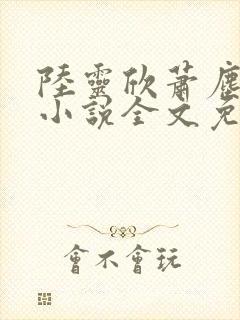 陸靈欣蕭塵
小說全文免
會不會玩